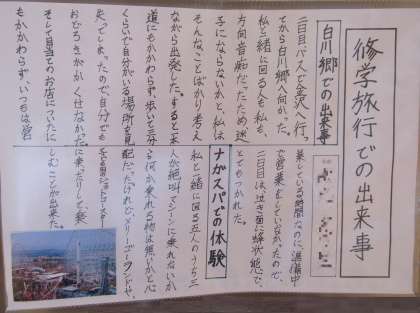 修学旅行での出来事
白川郷での出来事
二日目、バスで金沢へ行っ
てから白川郷へ向かった。
私と一緒に回る人も私も、
方向音痴だったため迷
子にならないかと、私は
そんなことばかり考え
ながら出発した。すると一本
道にもかかわらず、歩いて三分
くらいで自分がいる場所を見
失ってしまったので自分でも
おどろきがかくせなかった。
そして目当てのお店についたに
もかかわらず、いつもは営
業している時間なのに、準備中
で営業をしていなかったので、
二日目は、泣き面に蜂状態で、
とてもつかれた。
ナガスパでの体験
私と一緒に回る五人のうち三
人が絶叫マシーンに乗れないか
ら何か乗れる物は無いかと心
配だったけれど、メリーゴーランドや、
ジェットコースター
に乗ったりして、楽
しむことが出来た。